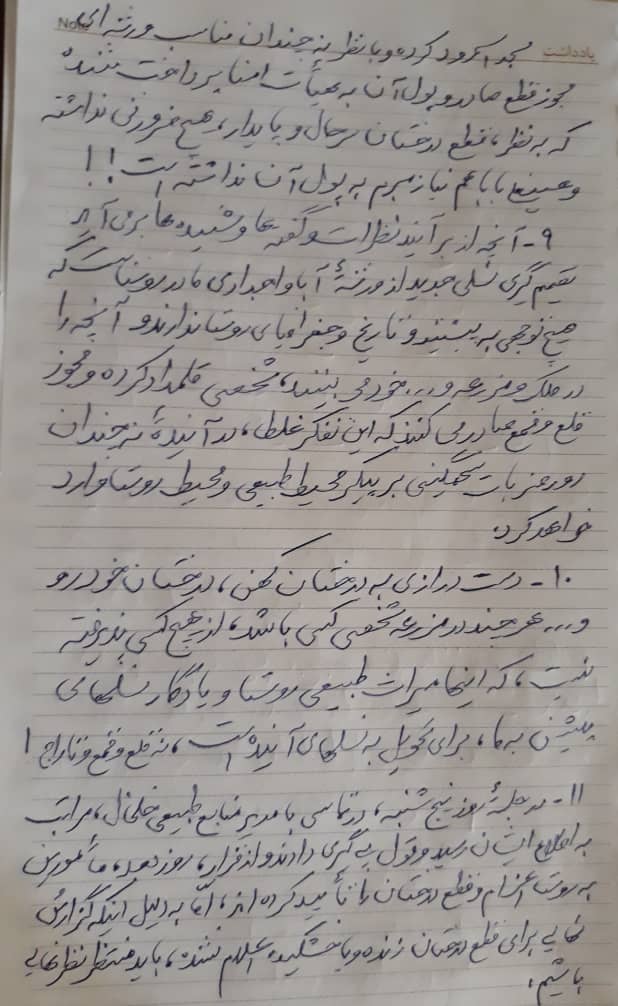 یادداشت
Note
مجدد اسکرود کرده و با نظر نه چندان مناسب ورثه ای
مجوز قطع صادر و پول آن به هیأت امنا پرداخت شده
که به نظر، قطع درختان سرحال و پایدار، هیچ ضرورتی نداشته
و عمیعاً باباهم نیاز مبرم به پول آن نداشته است!!
۹- آنچه از برآیند نظرات و گفته ها و شنیده ها برمی آید
تصمیم گیری نسلی جدید از ورثهٔ آبا و اجدادی ما در روستاست که
هیچ توجهی به پیشینه و تاریخ و جغرافیای روستا ندارند و آنچه را
در ملک و مزرعه و... خود می بینند، شخصی قلمداد کرده و مجوز
قلع و قمع صادر می کنند که این تفکر غلط، در آیندهٔ نه چندان
دور ضربات سهمگینی بر پیکر محیط طبیعی و محیط روستا وارد
خواهد کرد.
۱۰- دست درازی به درختان کهن، درختان خودرو
و... هر چند در مزرعه شخصی کسی باشد، از هیچ کسی پذیرفته
نیست، که اینها میراث طبیعی روستا و یادگار نسلهای
پیشین به ما، برای تحویل به نسلهای آینده است، نه قلع و قمع و تاراج!
۱۱- در جلسهٔ روز پنج شنبه، در تماسی با مدیر منابع طبیعی خلخال، مراتب
به اطلاع ایشان رسید و قول پی گیری دادند و از قرار، روز بعد، مأمورین
به روستا اعزام و قطع درختان را تأیید کرده اند، امّا به دلیل اینکه گزارش
نهایی برای قطع درختان زنده و یا خشکیده اعلام نشده، باید منتظر نظر نهایی
باشیم.